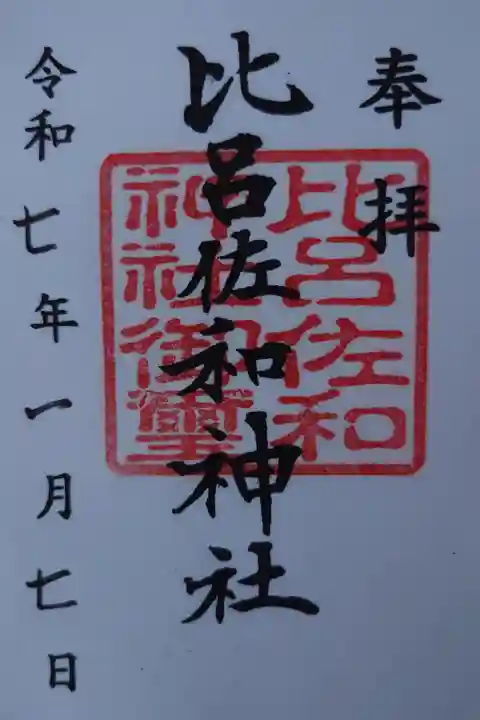 奉拝
比呂佐和神社
令和七年一月七日
比呂佐和
神社御璽